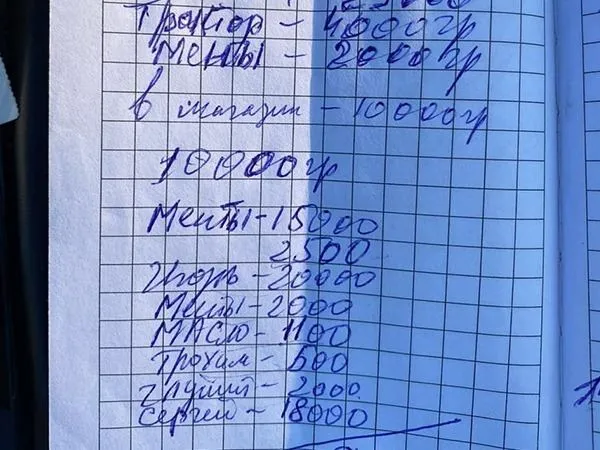 Трактор - 4000гр
Менты - 2000гр
в магазин - 10000гр
10000гр
Менты - 15000
2500
Игорь - 20000
Менты - 2000
МАСЛО - 1100
Трохим - 500
2000
Сергей - 18000